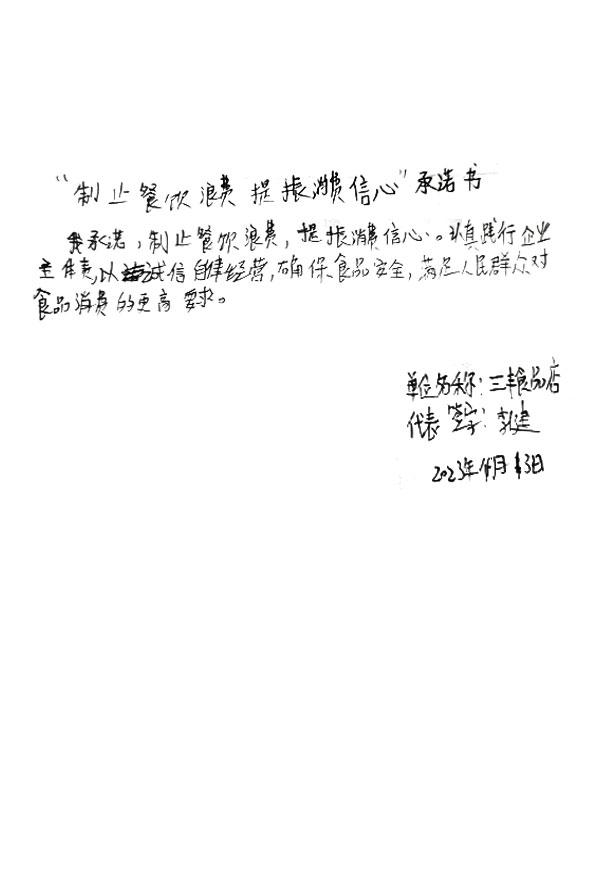 “制止餐饮浪费 提振消费信心”承诺书
我承诺，制止餐饮浪费，提振消费信心。认真践行企业
主体责，以诚信自律经营，确保食品安全，满足人民群众对
食品消费的更高要求。
单位名称：三丰食品店
代表签字：李建
2023年4月13日